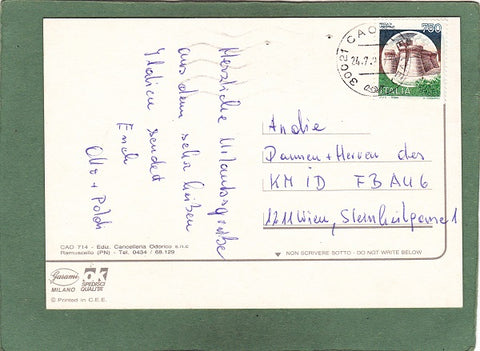 Herzliche Urlaubsgrüße
aus dem sehr heißen
Italien sendet
Euch
Otto + Poldi
30021 CAO
24.7.9
750
ITALIA
An die
Damen + Herren des
KM ID FBAU6
1211 Wien, Sternheilgasse 1
CAO 714 - Ediz. Cancelleria Odorico s.n.c
Ramuscello (PN) - Tel. 0434 / 68.129
NON SCRIVERE SOTTO - DO NOT WRITE BELOW
Garami
MILANO
OK
SPEDISCI
QUALITÀ
© Printed in C.E.E.